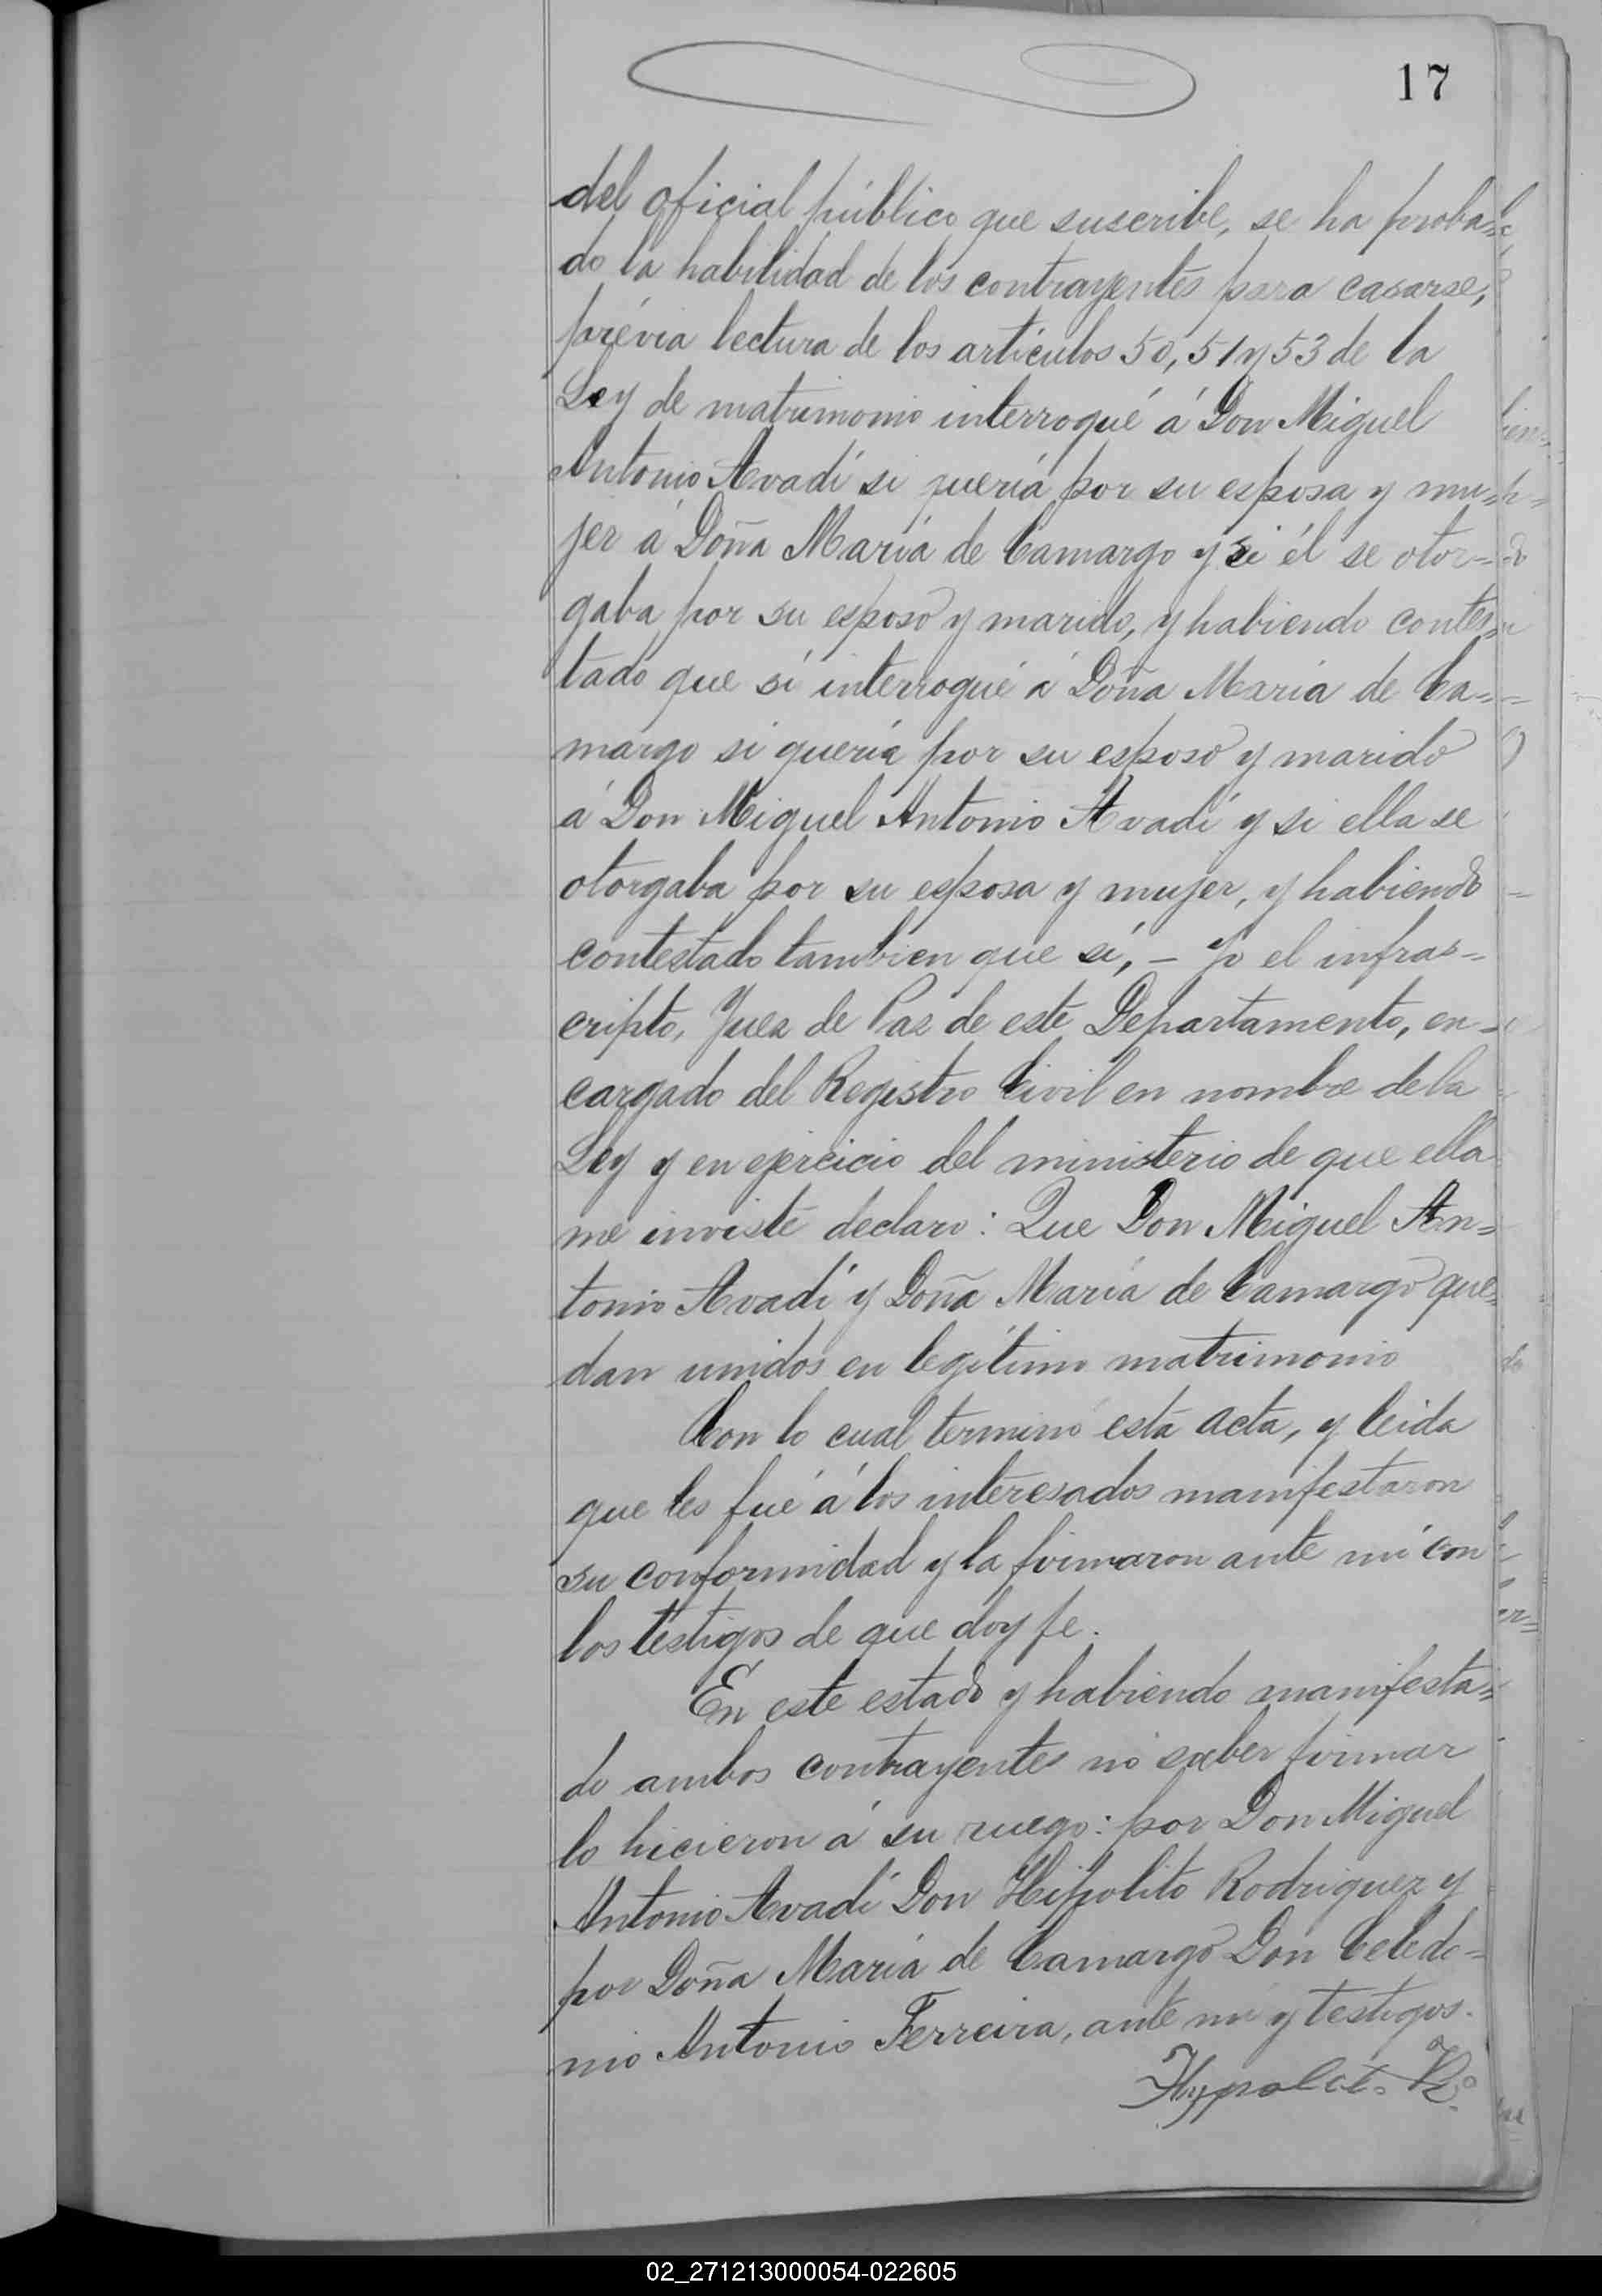 17
del oficial público que suscribe, se ha proba=
do la habilidad de los contrayentes para casarse,
prévia lectura de los artículos 50, 51 y 53 de la
Ley de matrimonio interrogué á Don Miguel
Antonio Avadí si quería por su esposa y mu=
jer á Doña María de Camargo y si él se otor=
gaba por su esposo y marido, y habiendo contes=
tado que sí interrogué á Doña María de Ca=
margo si quería por su esposo y marido
á Don Miguel Antonio Avadí y si ella se
otorgaba por su esposa y mujer, y habiendo
contestado tambien que sí, – Yo el infras=
cripto, Juez de Paz de este Departamento, en=
cargado del Registro Civil en nombre de la
Ley y en ejercicio del ministerio de que ella
me inviste declaro: Que Don Miguel An=
tonio Avadí y Doña María de Camargo que=
dan unidos en legítimo matrimonio
Con lo cual terminó esta acta, y leida
que les fué á los interesados manifestaron
su conformidad y la firmaron ante mí con
los testigos de que doy fe.
En este estado y habiendo manifesta=
do ambos contrayentes no saber firmar
lo hicieron á su ruego: por Don Miguel
Antonio Avadí Don Hipolito Rodriguez y
por Doña María de Camargo Don Celedo=
nio Antonio Ferreira, ante mí y testigos.
Hypolito R.º
02_271213000054-022605